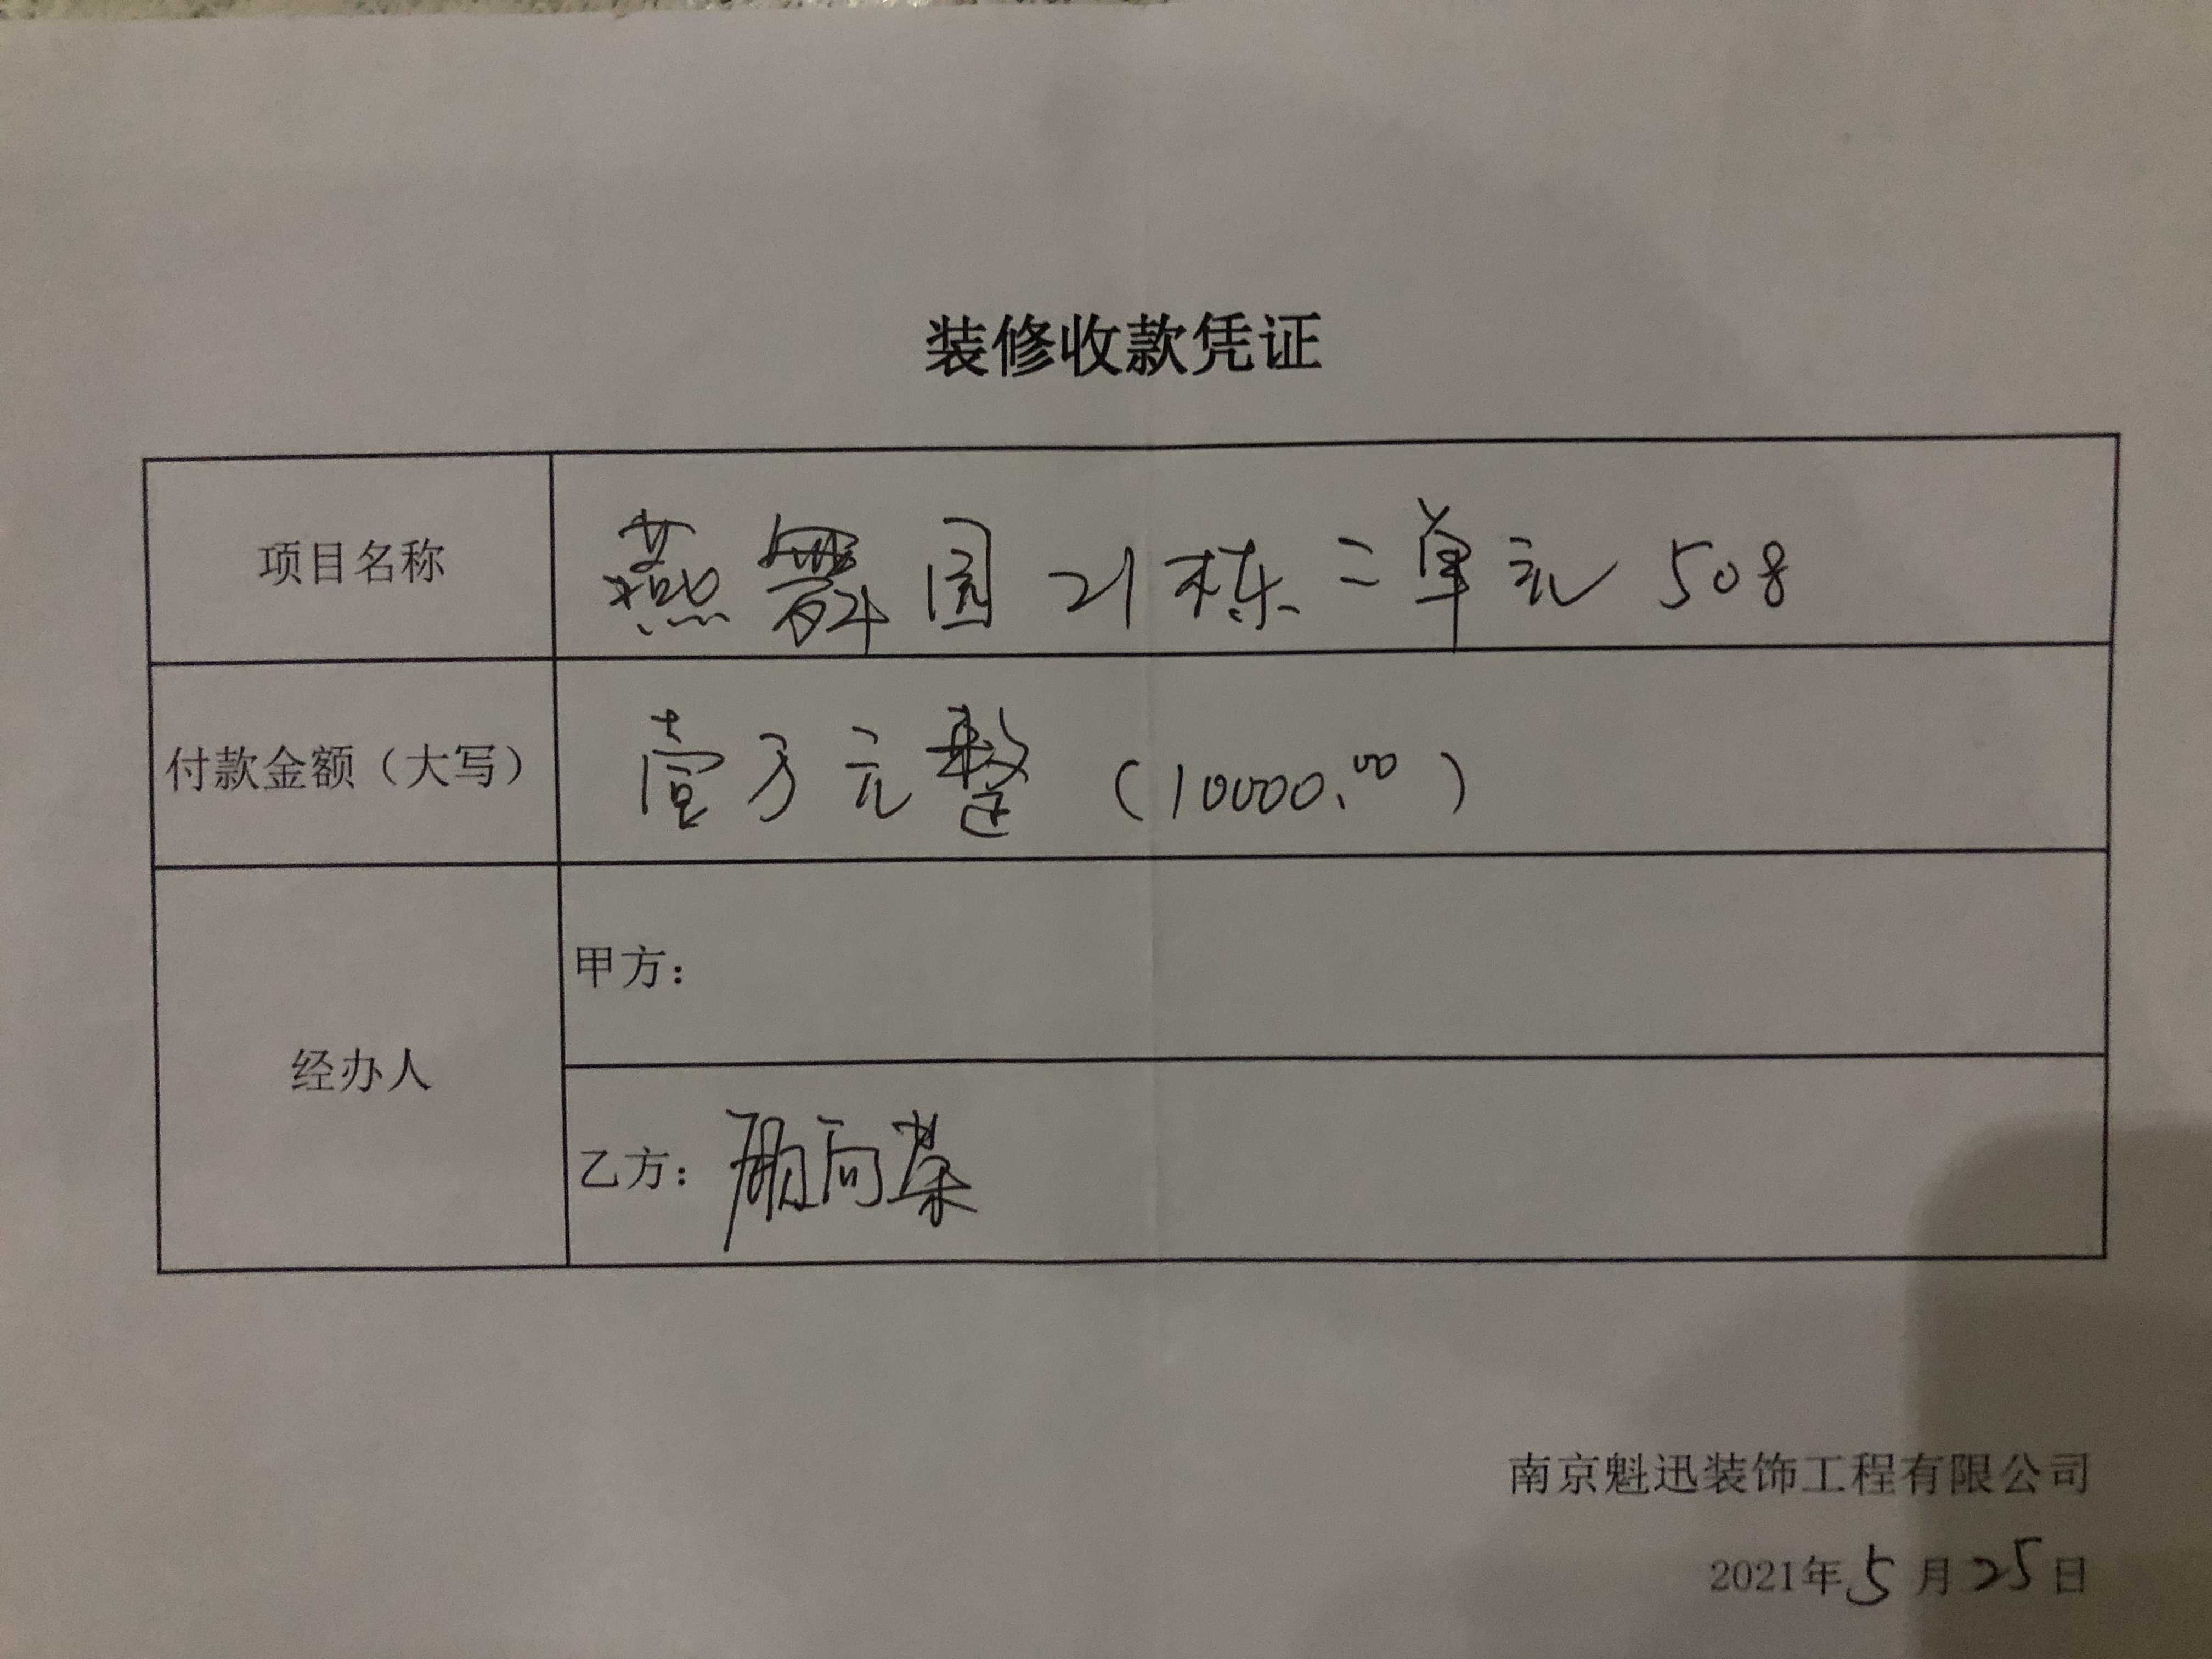 装修收款凭证
项目名称 燕舞园 21栋二单元 508
付款金额（大写） 壹万元整（10000.00）
经办人
甲方：
乙方：
南京魁迅装饰工程有限公司
2021年5月25日